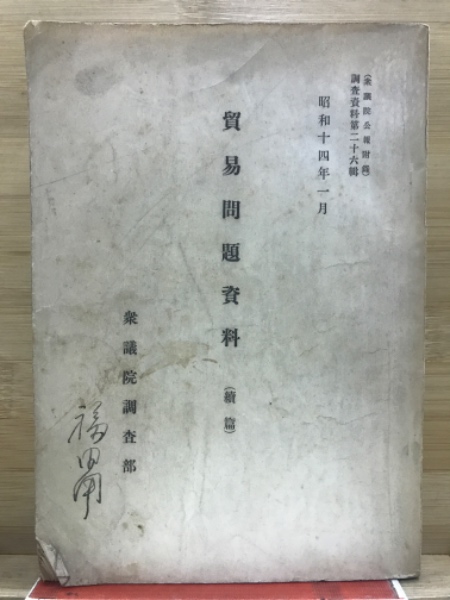 (衆議院公報附錄)
調査資料第二十六輯
昭和十四年一月
貿易問題資料(續篇)
衆議院調査部
福田用